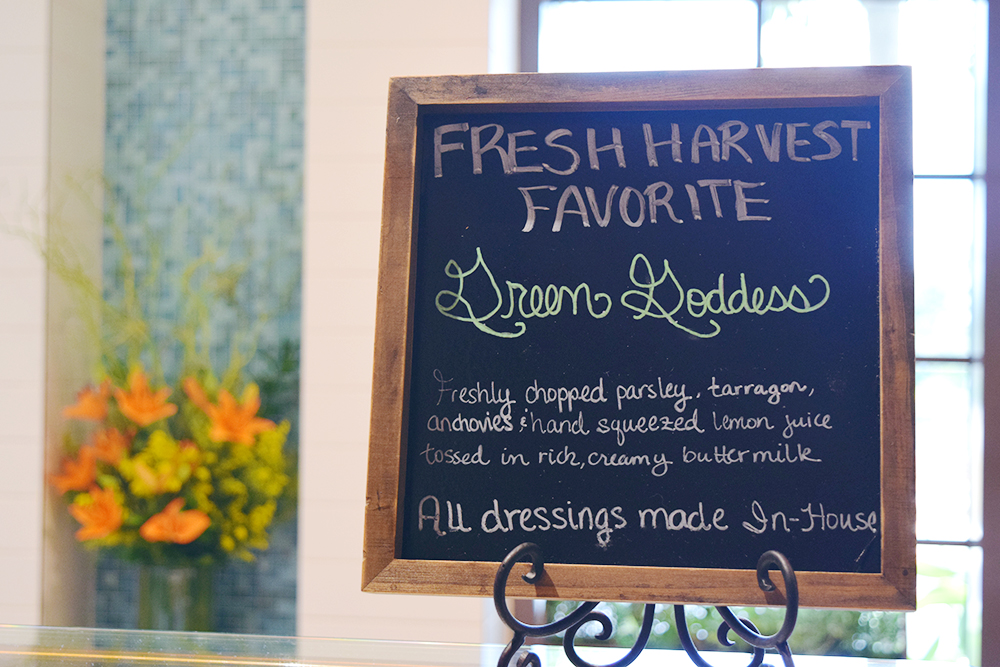 FRESH HARVEST
FAVORITE
Green Goddess
Freshly chopped parsley, tarragon,
anchovies & hand squeezed lemon juice
tossed in rich, creamy buttermilk
All dressings made In-House